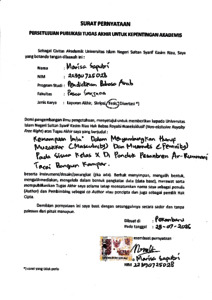 SURAT PERNYATAAN
PERSETUJUAN PUBLIKASI TUGAS AKHIR UNTUK KEPENTINGAN AKADEMIS
Sebagai Civitas Akademik Universitas Islam Negeri Sultan Syarif Kasim Riau, Saya
yang bertanda tangan dibawah ini :
Nama : Marisa Saputri
NIM : 22390725028
Program Studi : Pendidikan Bahasa Arab
Fakultas : Pasca Sarjana
Jenis Karya : (Laporan Akhir, Skripsi, Tesis, Disertasi*)
Demi pengembangan ilmu pengetahuan, menyetujui untuk memberikan kepada Universitas
Islam Negeri Sultan Syarif Kasim Riau Hak Bebas Royalti Noneksklusif (Non-exclusive Royalty
Free Right) atas Tugas Akhir saya yang berjudul :
Kemampuan Dalam Menyambungkan Huruf
Muzakkar (Masculinity) Dan Muannats (Feminity)
Pada Siswa Kelas X Di Pondok Pesantren Ar-Rumani
Tarai Bangun Kampar.
beserta instrumen/desain/perangkat (jika ada). Berhak menyimpan, mengalih bentuk,
mengalihmediakan, mengelola dalam bentuk pangkalan data (data base), merawat serta
mempublikasikan Tugas Akhir saya selama tetap mencantumkan nama saya sebagai penulis
(Author) dan Pembimbing sebagai co Author atau pencipta dan juga sebagai pemilik Hak
Cipta.
Demikian pernyataan ini saya buat dengan sesungguhnya secara sadar dan tanpa
paksaan dari pihak manapun.
Dibuat di : Pekanbaru
Pada tanggal : 28-07-2026
membuat pernyataan
Marisa Saputri
NIM 22390725028
*Coret yang tidak perlu